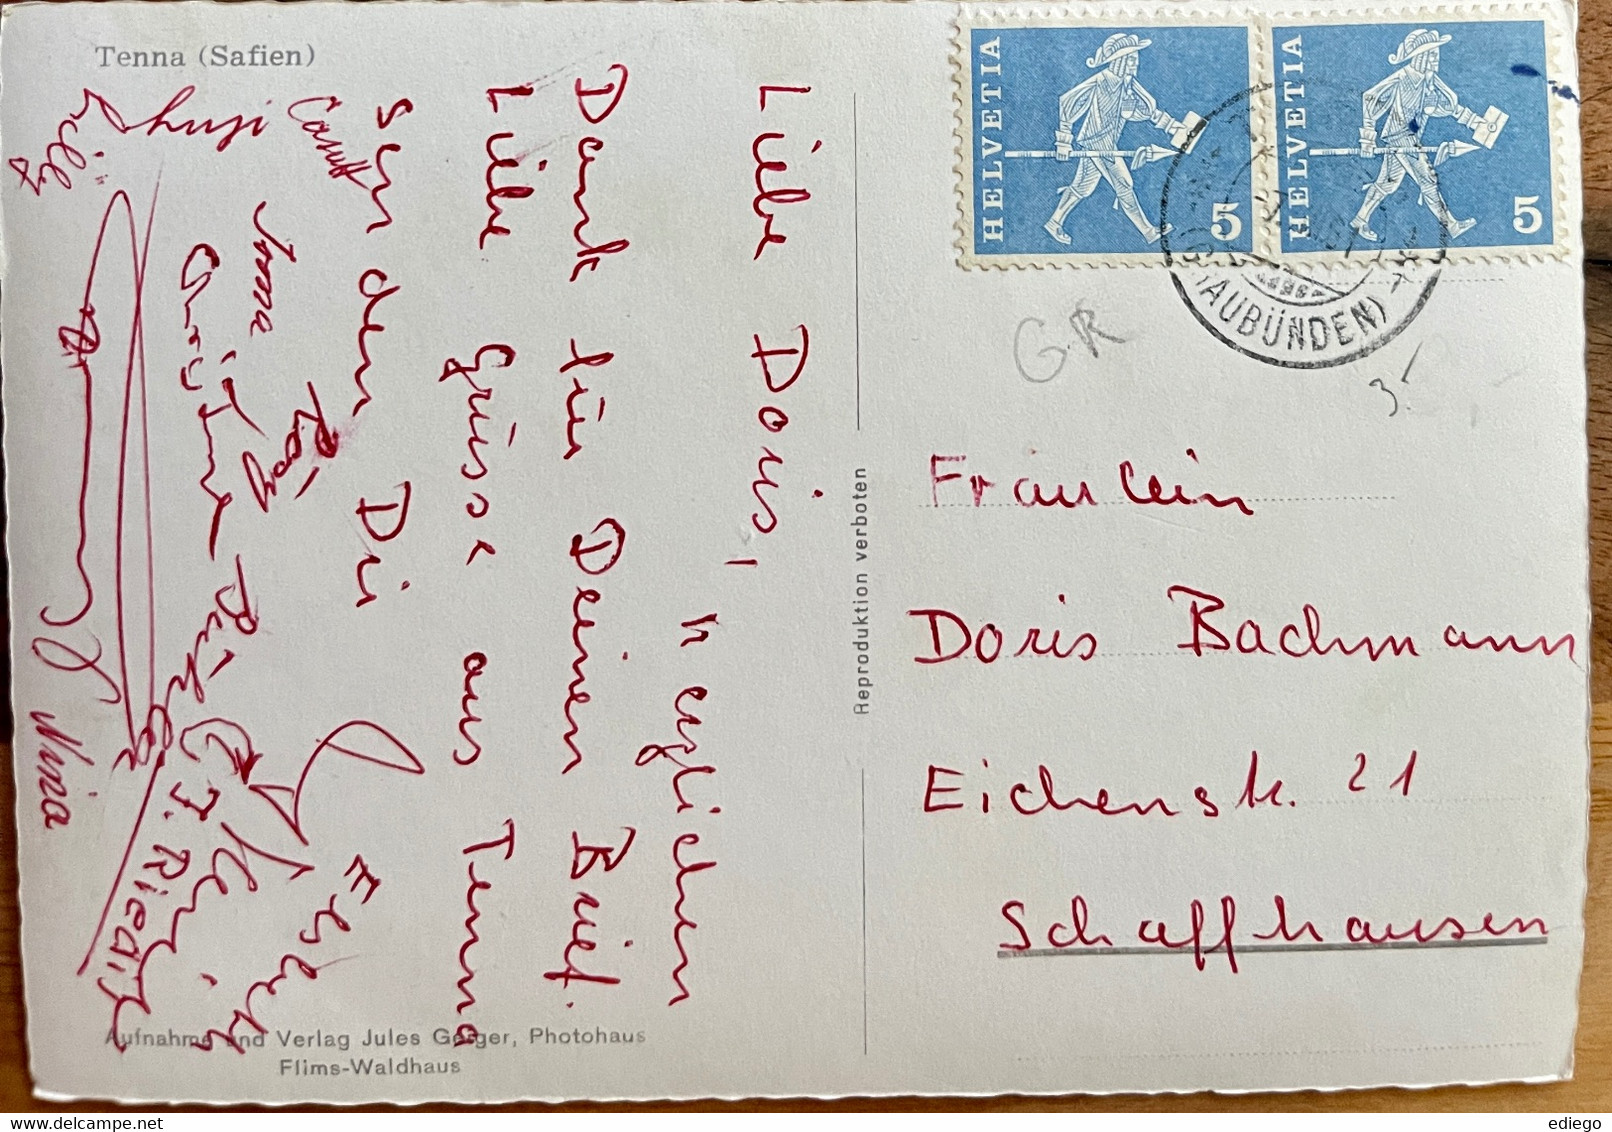 Tenna (Safien)
HELVETIA 5
HELVETIA 5
(GRAUBÜNDEN)
GR
3.-
Liebe Doris,
herzlichen
Dank für Deinen Brief.
Liebe Grüsse aus Tenna
senden Dir
Casuff
Lilly
Irma
Rösy
Christine
Nina
J. Riedi
Elsbeth
Reproduktion verboten
Fräulein
Doris Bachmann
Eichenstr. 21
Schaffhausen
Aufnahme und Verlag Jules Geiger, Photohaus
Flims-Waldhaus
ediego
delcampe.net